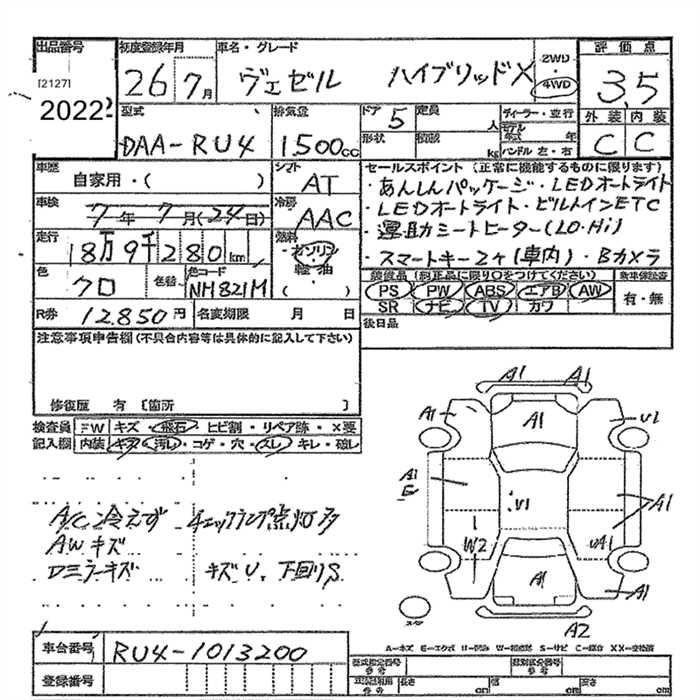 出品番号
[2127]
2022
初度登録年月
26 7月
車名・グレード
ヴェゼル ハイブリッドX
2WD
・
4WD
評価点
3.5
外装 内装
C C
型式
DAA-RU4
排気量
1500cc
ドア 5
定員 人
形状
積載 kg
ディーラー・並行
モデル年式 年
ハンドル 左・右
車歴
自家用・( )
シフト
AT
車検
7年7月(24日)
冷房
AAC
走行
18万9千280km
燃料
ガソリン
軽油
( )
色
クロ
色替
色コード
NH821M
R券 12.850円
名変期限 月 日
セールスポイント(正常に機能するものに限ります)
・あんしんパッケージ・LEDオートライト
・LEDオートライト・ビルトインETC
・運・助シートヒーター(LO・Hi)
・スマートキー2ヶ(車内)・Bカメラ
装備品(純正品に限り〇をつけてください)
PS PW ABS エアB AW
SR ナビ TV カワ
有・無
後日品
注意事項申告欄(不具合内容等は具体的に記入して下さい)
修復歴 有〔箇所 〕
検査員 FW キズ・飛石・ヒビ割・リペア跡・X要
記入欄 内装 キズ・汚レ・コゲ・穴・スレ・キレ・破レ
A/C冷えず チェックランプ点灯多
AWキズ
Dミラーキズ キズU、下回りS
A1 A1
A1 A1 U1
A1
E U1 A1
W2 UA1
A1 A1
A2
スペア
A=キズ E=エクボ U=凹み W=補修跡 S=サビ C=腐食 XX=交換済
車台番号 RU4-1013200
登録番号
型式指定番号
類別区分番号
長さ cm 幅 cm 高さ cm